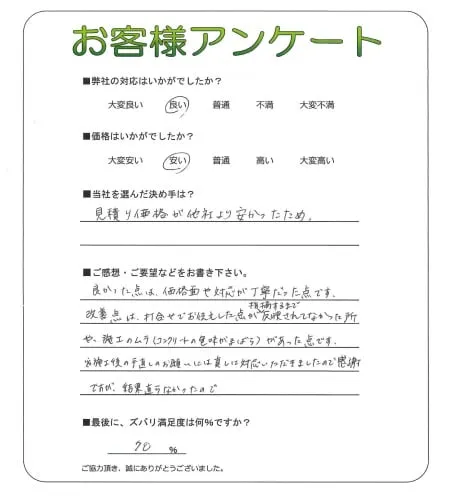 お客様アンケート
■弊社の対応はいかがでしたか？
大変良い 良い 普通 不満 大変不満
■価格はいかがでしたか？
大変安い 安い 普通 高い 大変高い
■当社を選んだ決め手は？
見積り価格が他社より安かったため。
■ご感想・ご要望などをお書き下さい。
良かった点は、価格面や対応が丁寧だった点です。
指摘するまで
改善点は、打合せでお伝えした点が反映されてなかった所
や、施工のムラ(コンクリートの色味がまばら)があった点です。
施工後の手直しのお願いには真しに対応いただきましたので感謝
ですが、結果直らなかったので
■最後に、ズバリ満足度は何%ですか？
70 %
ご協力頂き、誠にありがとうございました。